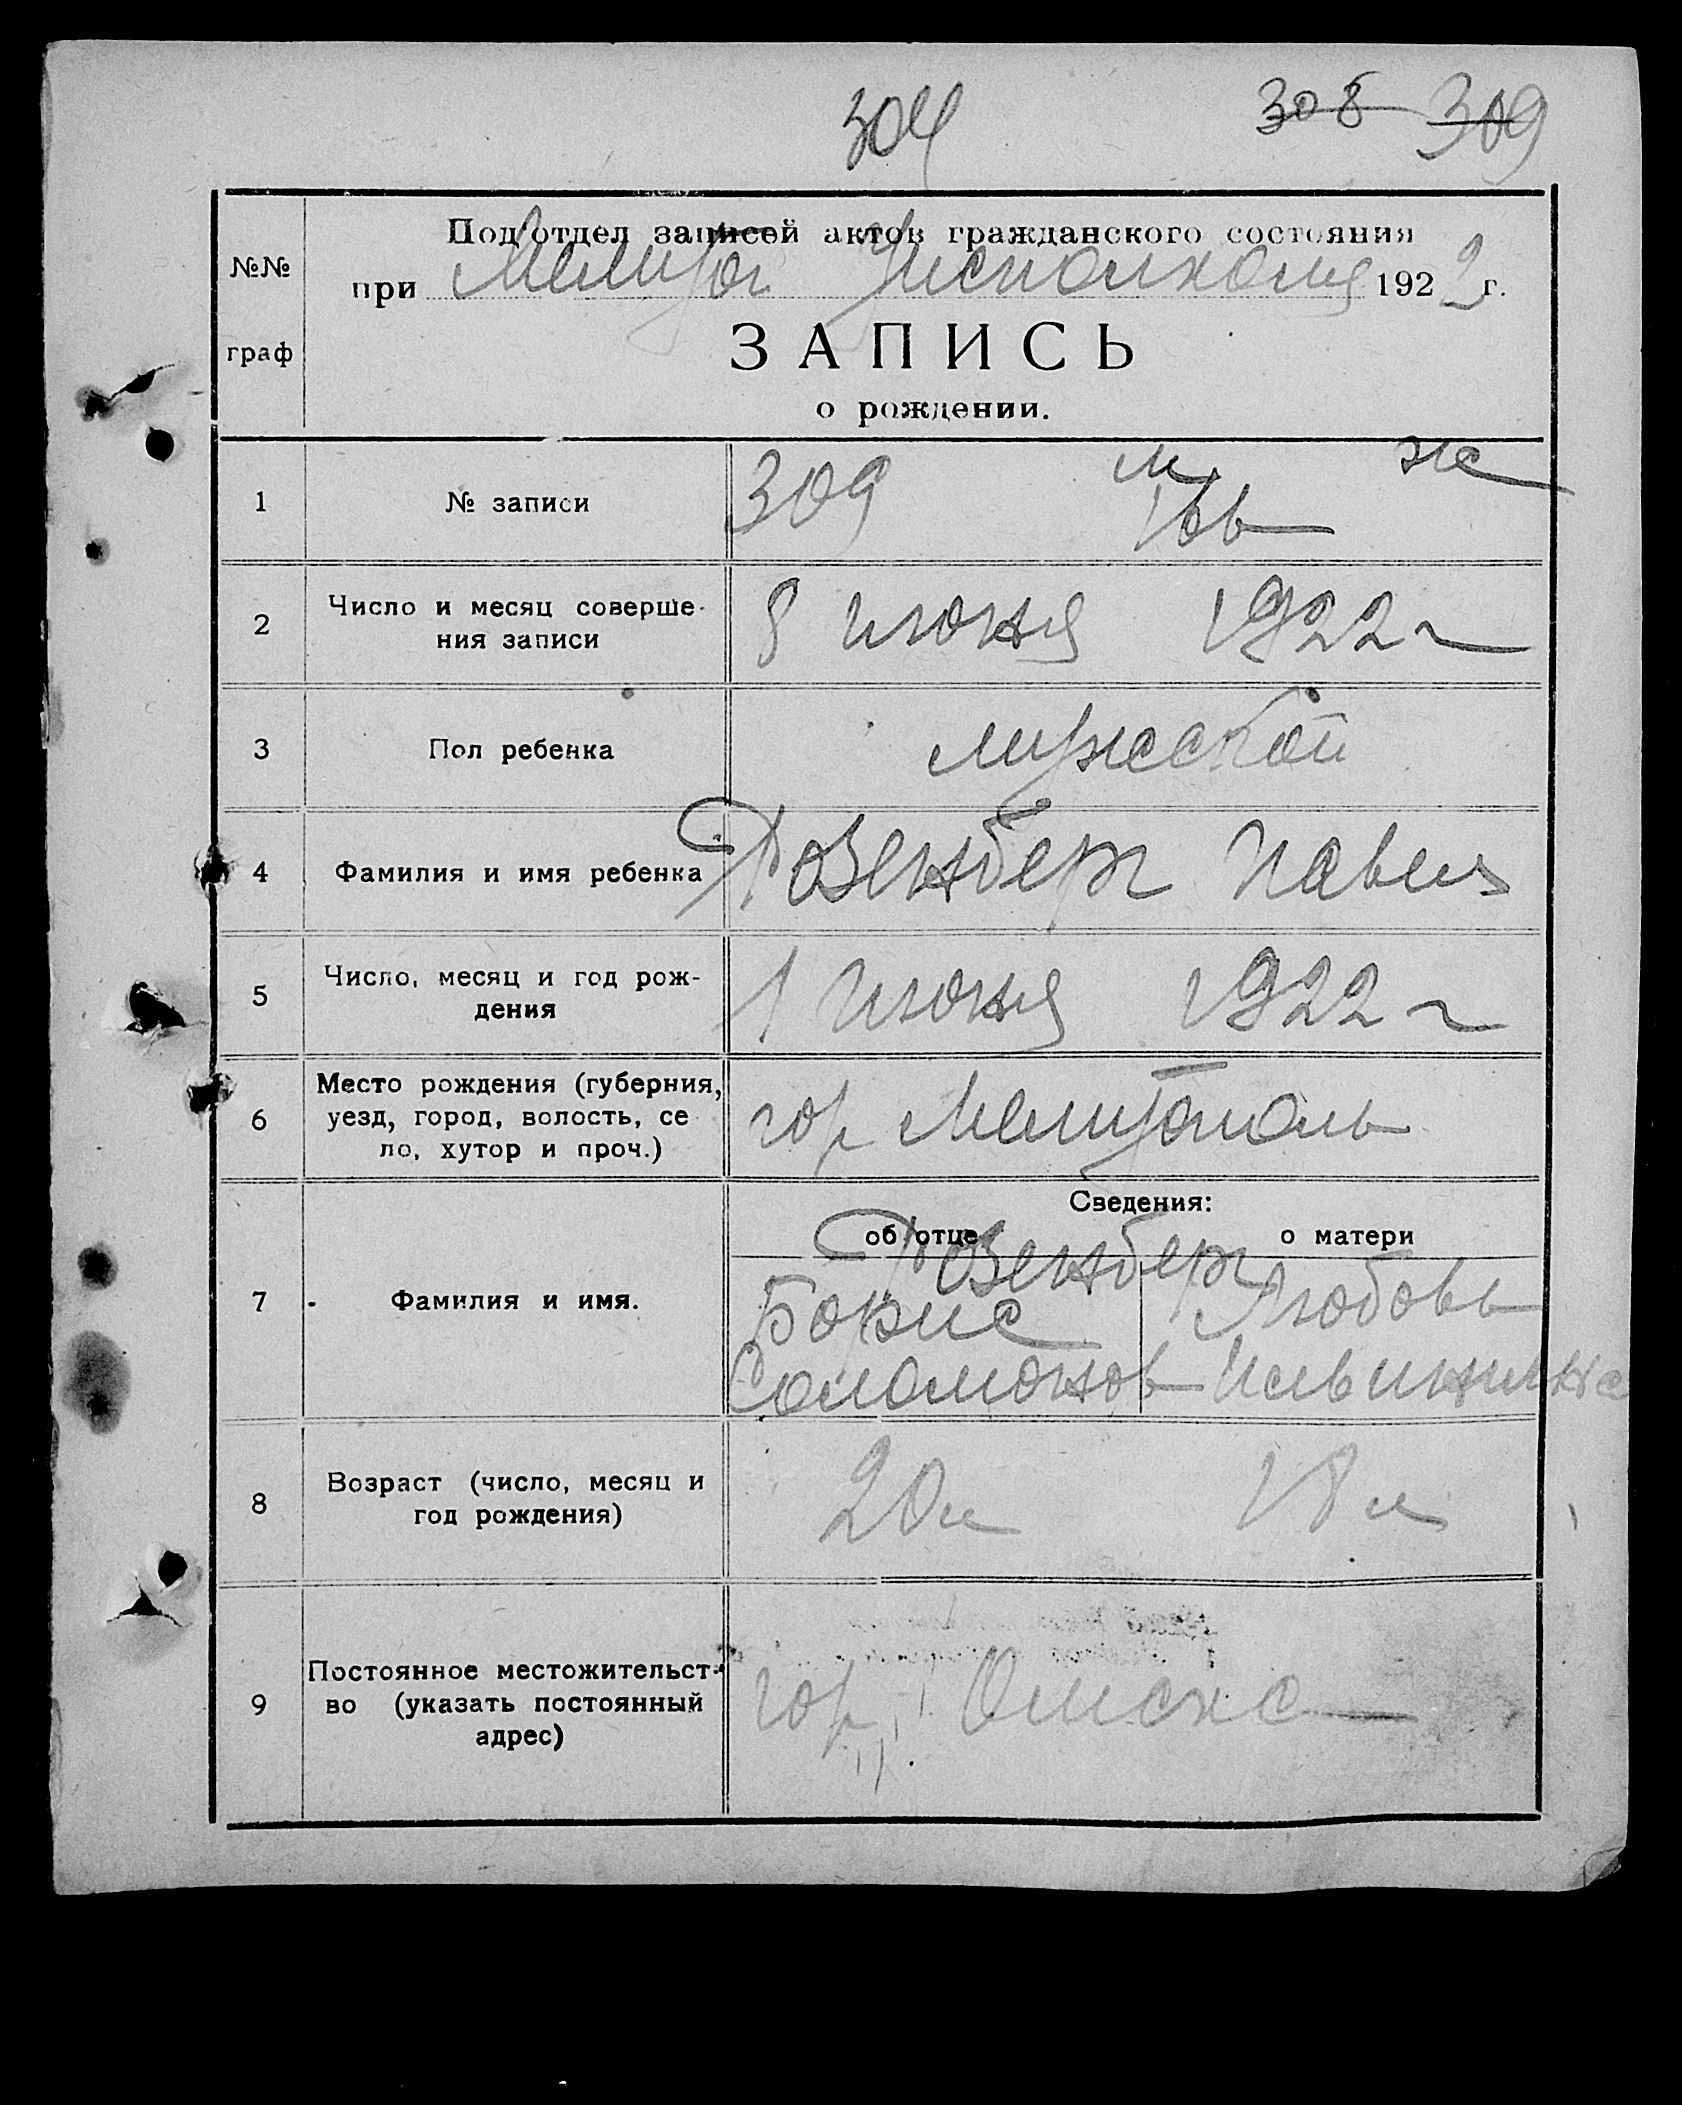 304 308 309
№№
граф
Под'отдел записей актов гражданского состояния
при Мелитоп Уисполкома 1922 г.
ЗАПИСЬ
о рождении.
1 № записи 309 м ж
2 Число и месяц соверше-
ния записи 8 июня 1922 г
3 Пол ребенка мужской
4 Фамилия и имя ребенка Розенберг Павел
5 Число, месяц и год рож-
дения 1 июня 1922 г
6 Место рождения (губерния,
уезд, город, волость, се
ло, хутор и проч.) гор Мелитополь
Сведения:
об отце о матери
Розенберг
7 Фамилия и имя. Борис Любовь
Соломонов Ильинична
8 Возраст (число, месяц и
год рождения) 20 л 18 л
9 Постоянное местожительст-
во (указать постоянный
адрес) гор Омск